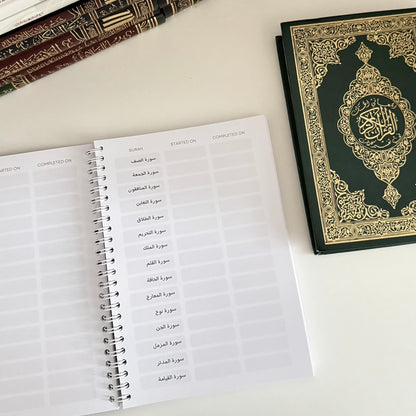 STARTED ON COMPLETED ON
SURAH STARTED ON COMPLETED ON
سورة الصف
سورة الجمعة
سورة المنافقون
سورة التغابن
سورة الطلاق
سورة التحريم
سورة الملك
سورة القلم
سورة الحاقة
سورة المعارج
سورة نوح
سورة الجن
سورة المزمل
سورة المدثر
سورة القيامة
القرآن الكريم